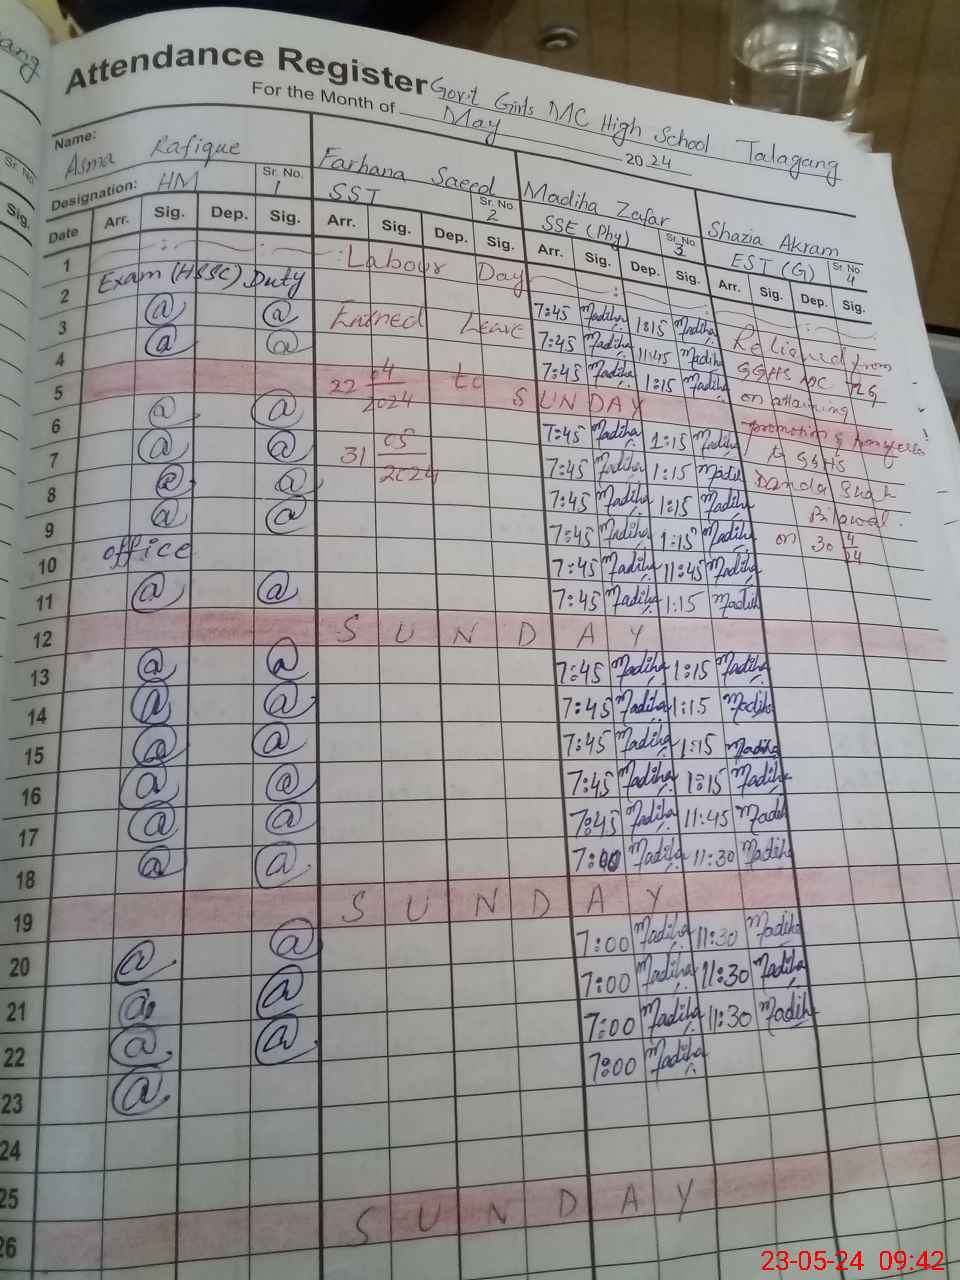 Attendance Register Govt Girls MC High School Talagang
For the Month of May 2024
Name: Asma Rafique
Farhana Saeed
Madiha Zafar
Shazia Akram
Designation: HM Sr. No. 1
SST Sr. No. 2
SSE (Phy) Sr. No. 3
EST (G) Sr. No. 4
Date Arr. Sig. Dep. Sig. Arr. Sig. Dep. Sig. Arr. Sig. Dep. Sig. Arr. Sig. Dep. Sig.
1 Labour Day
2 Exam (HSSC) Duty 7:45 Madiha 1:15 Madiha
3 @ @ 7:45 Madiha 11:45 Madiha
4 @ @ 7:45 Madiha 1:15 Madiha
Earned Leave
22 04/2024 to
31 05/2024
Relieved from
GGHS MC TLG
on attaining
promotion & transfer
to GGHS
Danda Shah
Bilawal.
on 30 4/24
5 SUNDAY
6 @ @ 7:45 Madiha 1:15 Madiha
7 @ @ 7:45 Madiha 1:15 Madiha
8 @ @ 7:45 Madiha 1:15 Madiha
9 @ @ 7:45 Madiha 1:15 Madiha
10 office 7:45 Madiha 11:45 Madiha
11 @ @ 7:45 Madiha 1:15 Madiha
12 SUNDAY
13 @ @ 7:45 Madiha 1:15 Madiha
14 @ @ 7:45 Madiha 1:15 Madiha
15 @ @ 7:45 Madiha 1:15 Madiha
16 @ @ 7:45 Madiha 1:15 Madiha
17 @ @ 7:45 Madiha 11:45 Madiha
18 @ @ 7:00 Madiha 11:30 Madiha
19 SUNDAY
20 @ @ 7:00 Madiha 11:30 Madiha
21 @ @ 7:00 Madiha 11:30 Madiha
22 @ @ 7:00 Madiha 11:30 Madiha
23 @ 7:00 Madiha
24
25
26 SUNDAY
23-05-24 09:42